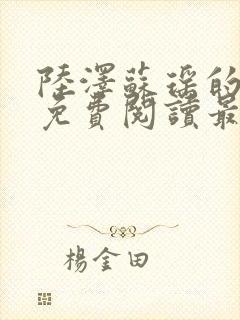 陸澤蘇瑤的
免費閱讀最
楊金田